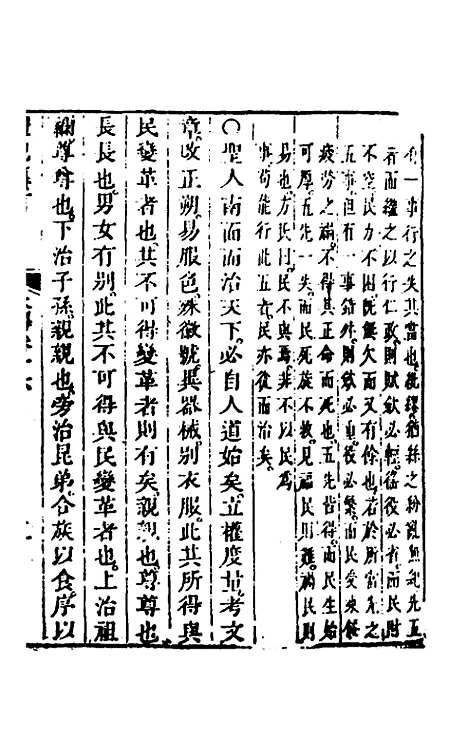 有一事行之失其當也紕繆猶絲之紛亂無紀先五
者而繼之以行仁政則賦斂必輕徭役必省而民財
不空民力不困既無欠而又有餘也若於所當先之
五事但有一事錯外則斂必重役必繁而民受來餒
疲勞之禍不得其正命而死也五先皆得而民生始
可厚五先一失而民死旋不救見福民則難禍民則
易也方氏曰民不與焉非不以民為
事苟能行此五者民亦從而治矣
〇聖人南面而治天下必自人道始矣立權度量考文
章改正朔易服色殊徽號異器械別衣服此其所得與
民變革者也其不可得變革者則有矣親親也尊尊也
長長也男女有別此其不可得與民變革者也上治祖
禰尊尊也下治子孫親親也旁治昆弟合族以食序以